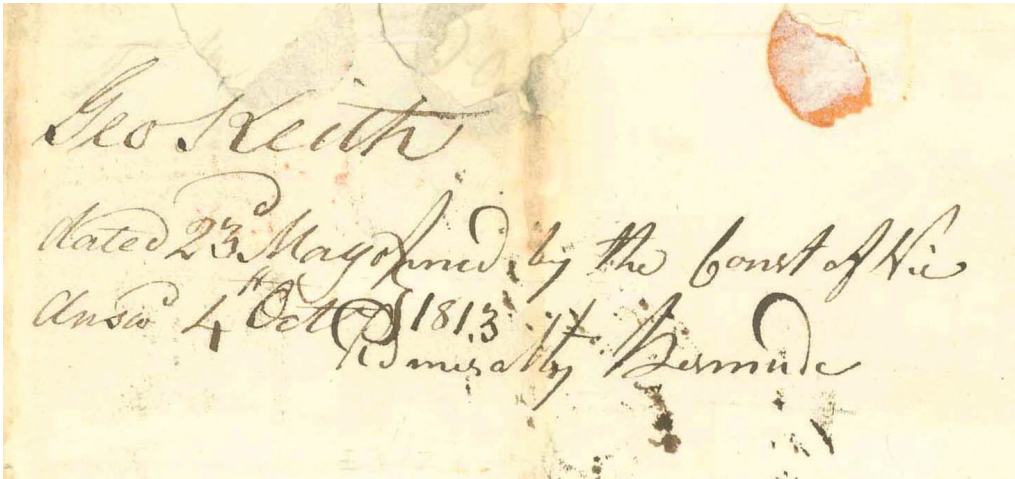 Geo Keith
dated 23d May opened by the Court of Vice
Answd 4th Octr 1813
Admiralty Bermuda